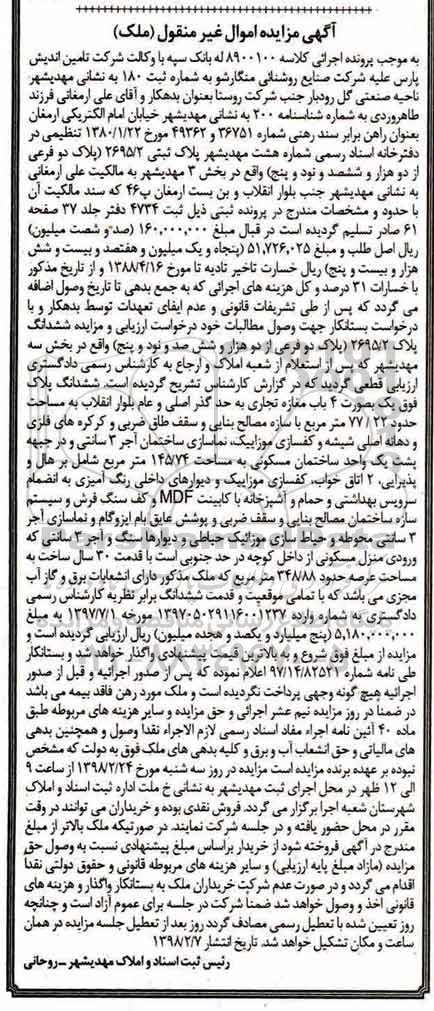 آگهی مزایده اموال غیر منقول (ملک)
به موجب پرونده اجرائی کلاسه ۸۹۰۰۱۰۰ له بانک سپه با وکالت شرکت تامین اندیش
پارس علیه شرکت صنایع روشنائی منگارشو به شماره ثبت ۱۸۰ به نشانی مهدیشهر-
ناحیه صنعتی گل رودبار جنب شرکت روستا بعنوان بدهکار و آقای علی ارمغانی فرزند
طاهروردی به شماره شناسنامه ۲۰۰ به نشانی مهدیشهر خیابان امام الکتریکی ارمغان
بعنوان راهن برابر سند رهنی شماره ۳۶۷۵۱ و ۴۹۳۶۲ مورخ ۱۳۸۰/۱/۲۲ تنظیمی در
دفترخانه اسناد رسمی شماره هشت مهدیشهر پلاک ثبتی ۲۶۹۵/۲ (پلاک دو فرعی
از دو هزار و ششصد و نود و پنج) واقع در بخش ۳ مهدیشهر به مالکیت علی ارمغانی
به نشانی مهدیشهر جنب بلوار انقلاب و بن بست ارمغان پ۴۶ که سند مالکیت آن
با حدود و مشخصات مندرج در پرونده ثبتی ذیل ثبت ۴۷۳۴ دفتر جلد ۳۷ صفحه
۶۱ صادر تسلیم گردیده است در قبال مبلغ ۱۶۰,۰۰۰,۰۰۰ (صد و شصت میلیون)
ریال اصل طلب و مبلغ ۵۱,۷۲۶,۰۲۵ (پنجاه و یک میلیون و هفتصد و بیست و شش
هزار و بیست و پنج) ریال خسارت تاخیر تادیه تا مورخ ۱۳۸۸/۴/۱۶ و از تاریخ مذکور
با خسارات ۳۱ درصد و کل هزینه های اجرائی که به جمع بدهی تا تاریخ وصول اضافه
می گردد که پس از طی تشریفات قانونی و عدم ایفای تعهدات توسط بدهکار و با
درخواست بستانکار جهت وصول مطالبات خود درخواست ارزیابی و مزایده ششدانگ
پلاک ۲۶۹۵/۲ (پلاک دو فرعی از دو هزار و شش صد و نود و پنج) واقع در بخش سه
مهدیشهر که پس از استعلام از شعبه املاک و ارجاع به کارشناس رسمی دادگستری
ارزیابی قطعی گردید که در گزارش کارشناس تشریح گردیده است. ششدانگ پلاک
فوق یک بصورت ۴ باب مغازه تجاری به حد گذر اصلی و عام بلوار انقلاب به مساحت
حدود ۷۷/۲۲ متر مربع با سازه مصالح بنایی و سقف طاق ضربی و کرکره های فلزی
و دهانه اصلی شیشه و کفسازی موزاییک، نماسازی ساختمان آجر ۳ سانتی و در جبهه
پشت یک واحد ساختمان مسکونی به مساحت ۱۴۵/۷۴ متر مربع شامل بر هال و
پذیرایی، ۲ اتاق خواب، کفسازی موزاییک و دیوارهای داخلی رنگ آمیزی به انضمام
سرویس بهداشتی و حمام و آشپزخانه با کابینت MDF و کف سنگ فرش و سیستم
سازه ساختمان مصالح بنایی و سقف ضربی و پوشش عایق بام ایزوگام و نماسازی آجر
۳ سانتی محوطه و حیاط سازی موزائیک حیاطی و دیوارها سنگ و آجر ۳ سانتی که
ورودی منزل مسکونی از داخل کوچه در حد جنوبی است با قدمت ۳۰ سال ساخت به
مساحت عرصه حدود ۳۴۸۸۸ متر مربع که ملک مذکور دارای انشعابات برق و گاز آب
مجزی می باشد که با تمامی موقعیت و قدمت ششدانگ برابر نظریه کارشناس رسمی
دادگستری به شماره وارده ۱۳۹۷۰۵۰۲۹۱۱۶۰۰۱۲۳۷ مورخ ۱۳۹۷/۷/۱ به مبلغ
۵,۱۸۰,۰۰۰,۰۰۰ (پنج میلیارد و یکصد و هجده میلیون) ریال ارزیابی گردیده است و
مزایده از مبلغ فوق شروع و به بالاترین قیمت پیشنهادی واگذار خواهد شد و بستانکار
طی نامه شماره ۹۷/۱۴/۸۲۵۲۱ اعلام نموده که پس از صدور اجرائیه و قبل از صدور
اجرائیه هیچ گونه وجهی پرداخت نگردیده است و ملک مورد رهن فاقد بیمه می باشد
در ضمنا در روز مزایده نیم عشر اجرائی و حق مزایده و سایر هزینه های مربوطه طبق
ماده ۴۰ آئین نامه اجراء مفاد اسناد رسمی لازم الاجراء نقدا وصول و همچنین بدهی
های مالیاتی و حق انشعاب آب و برق و کلیه بدهی های ملک فوق به دولت که مشخص
نبوده بر عهده برنده مزایده است مزایده در روز سه شنبه مورخ ۱۳۹۸/۲/۲۴ از ساعت ۹
الی ۱۲ ظهر در محل اجرای ثبت مهدیشهر به نشانی خ ملت اداره ثبت اسناد و املاک
شهرستان شعبه اجرا برگزار می گردد. فروش نقدی بوده و خریداران می توانند در وقت
مقرر در محل حضور یافته و در جلسه شرکت نمایند. در صورتیکه ملک بالاتر از مبلغ
مندرج در آگهی فروخته شود از خریدار براساس مبلغ پیشنهادی نسبت به وصول حق
مزایده (مازاد مبلغ پایه ارزیابی) و سایر هزینه های مربوطه قانونی و حقوق دولتی نقداً
اقدام می گردد و در صورت عدم شرکت خریداران ملک به بستانکار واگذار و هزینه های
قانونی اخذ و وصول خواهد شد ضمنا شرکت در جلسه برای عموم آزاد است و چنانچه
روز تعیین شده با تعطیل رسمی مصادف گردد روز بعد از تعطیل جلسه مزایده در همان
ساعت و مکان تشکیل خواهد شد. تاریخ انتشار ۱۳۹۸/۲/۷
رئیس ثبت اسناد و املاک مهدیشهر - روحانی